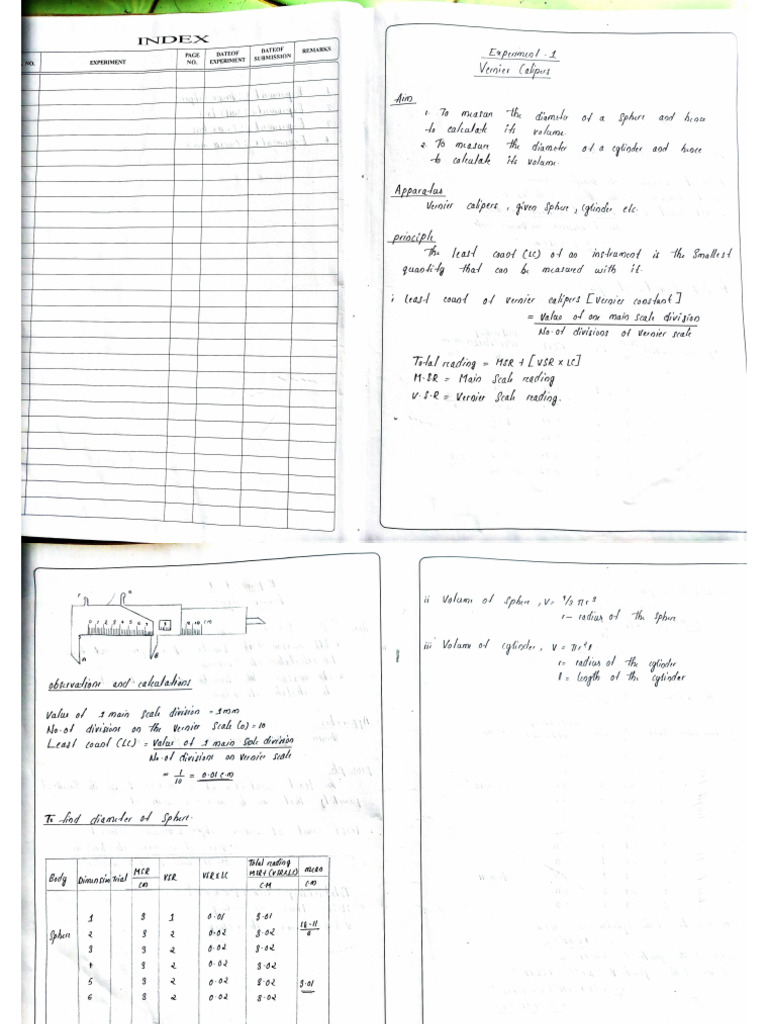 INDEX
NO.
EXPERIMENT
PAGE NO.
DATEOF EXPERIMENT
DATEOF SUBMISSION
REMARKS
Experiment - 1
Vernier Calipers
Aim
1. To measure the diameter of a sphere and hence
to calculate its volume.
2. To measure the diameter of a cylinder and hence
to calculate its volume.
Apparatus
Vernier calipers, given sphere, cylinder etc.
principle
the least count (LC) of an instrument is the smallest
quantity that can be measured with it.
i least count of vernier calipers [Vernier constant]
= Value of one main scale division
No. of divisions of vernier scale
Total reading = MSR + [VSR x LC]
M.SR = Main Scale reading
V.S.R = Vernier Scale reading.
0 1 2 3 4 5 6 7
9 10 (M)
A
B
observations and calculations
Value of 1 main scale division = 1mm
No. of divisions on the Vernier Scale (n) = 10
Least count (LC) = Value of 1 main scale division
No. of divisions on vernier scale
= 1/10 = 0.01 c.m
To find diameter of sphere.
Body Dimension Trial MSR (M) VSR VSRxLC Total reading MSR+(VSRxLC) C.M mean C.M
1 3 1 0.01 3.01
Sphere 2 3 2 0.02 3.02
3 3 2 0.02 3.02
4 3 2 0.02 3.02
5 3 2 0.02 3.02 3.01
6 3 2 0.02 3.02
ii Volume of sphere, V = 4/3 πr³
r - radius of the sphere
iii Volume of cylinder, V = πr²l
r = radius of the cylinder
l = length of the cylinder